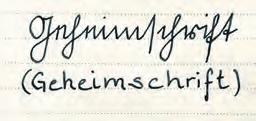 Geheimschrift
(Geheimschrift)